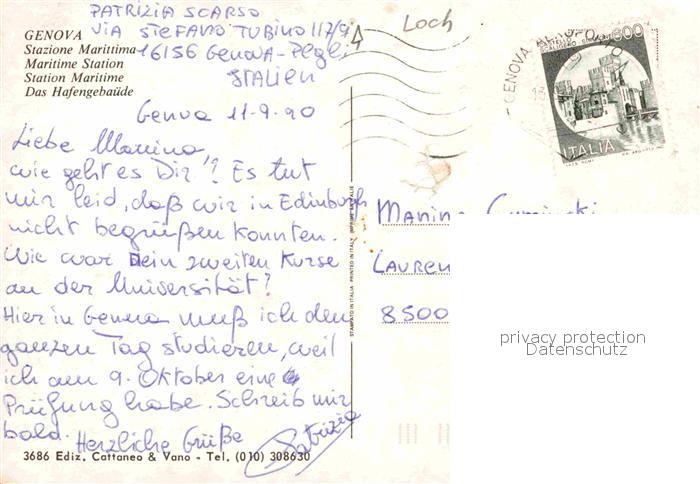 PATRIZIA SCARSO
VIA STEFANO TURINO 117/9A
16156 GENOVA-PEGLI
ITALIEN
Loch
GENOVA
Stazione Marittima
Maritime Station
Station Maritime
Das Hafengebaüde
GENOVA AEROPORTO
600
ITALIA
Genova 11-9-90
Liebe Manina,
wie geht es Dir? Es tut
mir leid, daß wir in Edinburgh
nicht begrüßen konnten.
Wie war Dein zweiten Kurse
an der Universität?
Hier in Genova muß ich den
ganzen Tag studieren, weil
ich am 9. Oktober eine
Prüfung habe. Schreib mir
bald. Herzliche Grüße
Patrizia
STAMPATO IN ITALIA - PRINTED IN ITALY
Manina
LAUREN
8500
privacy protection
Datenschutz
3686 Ediz. Cattaneo & Vano - Tel. (010) 308630